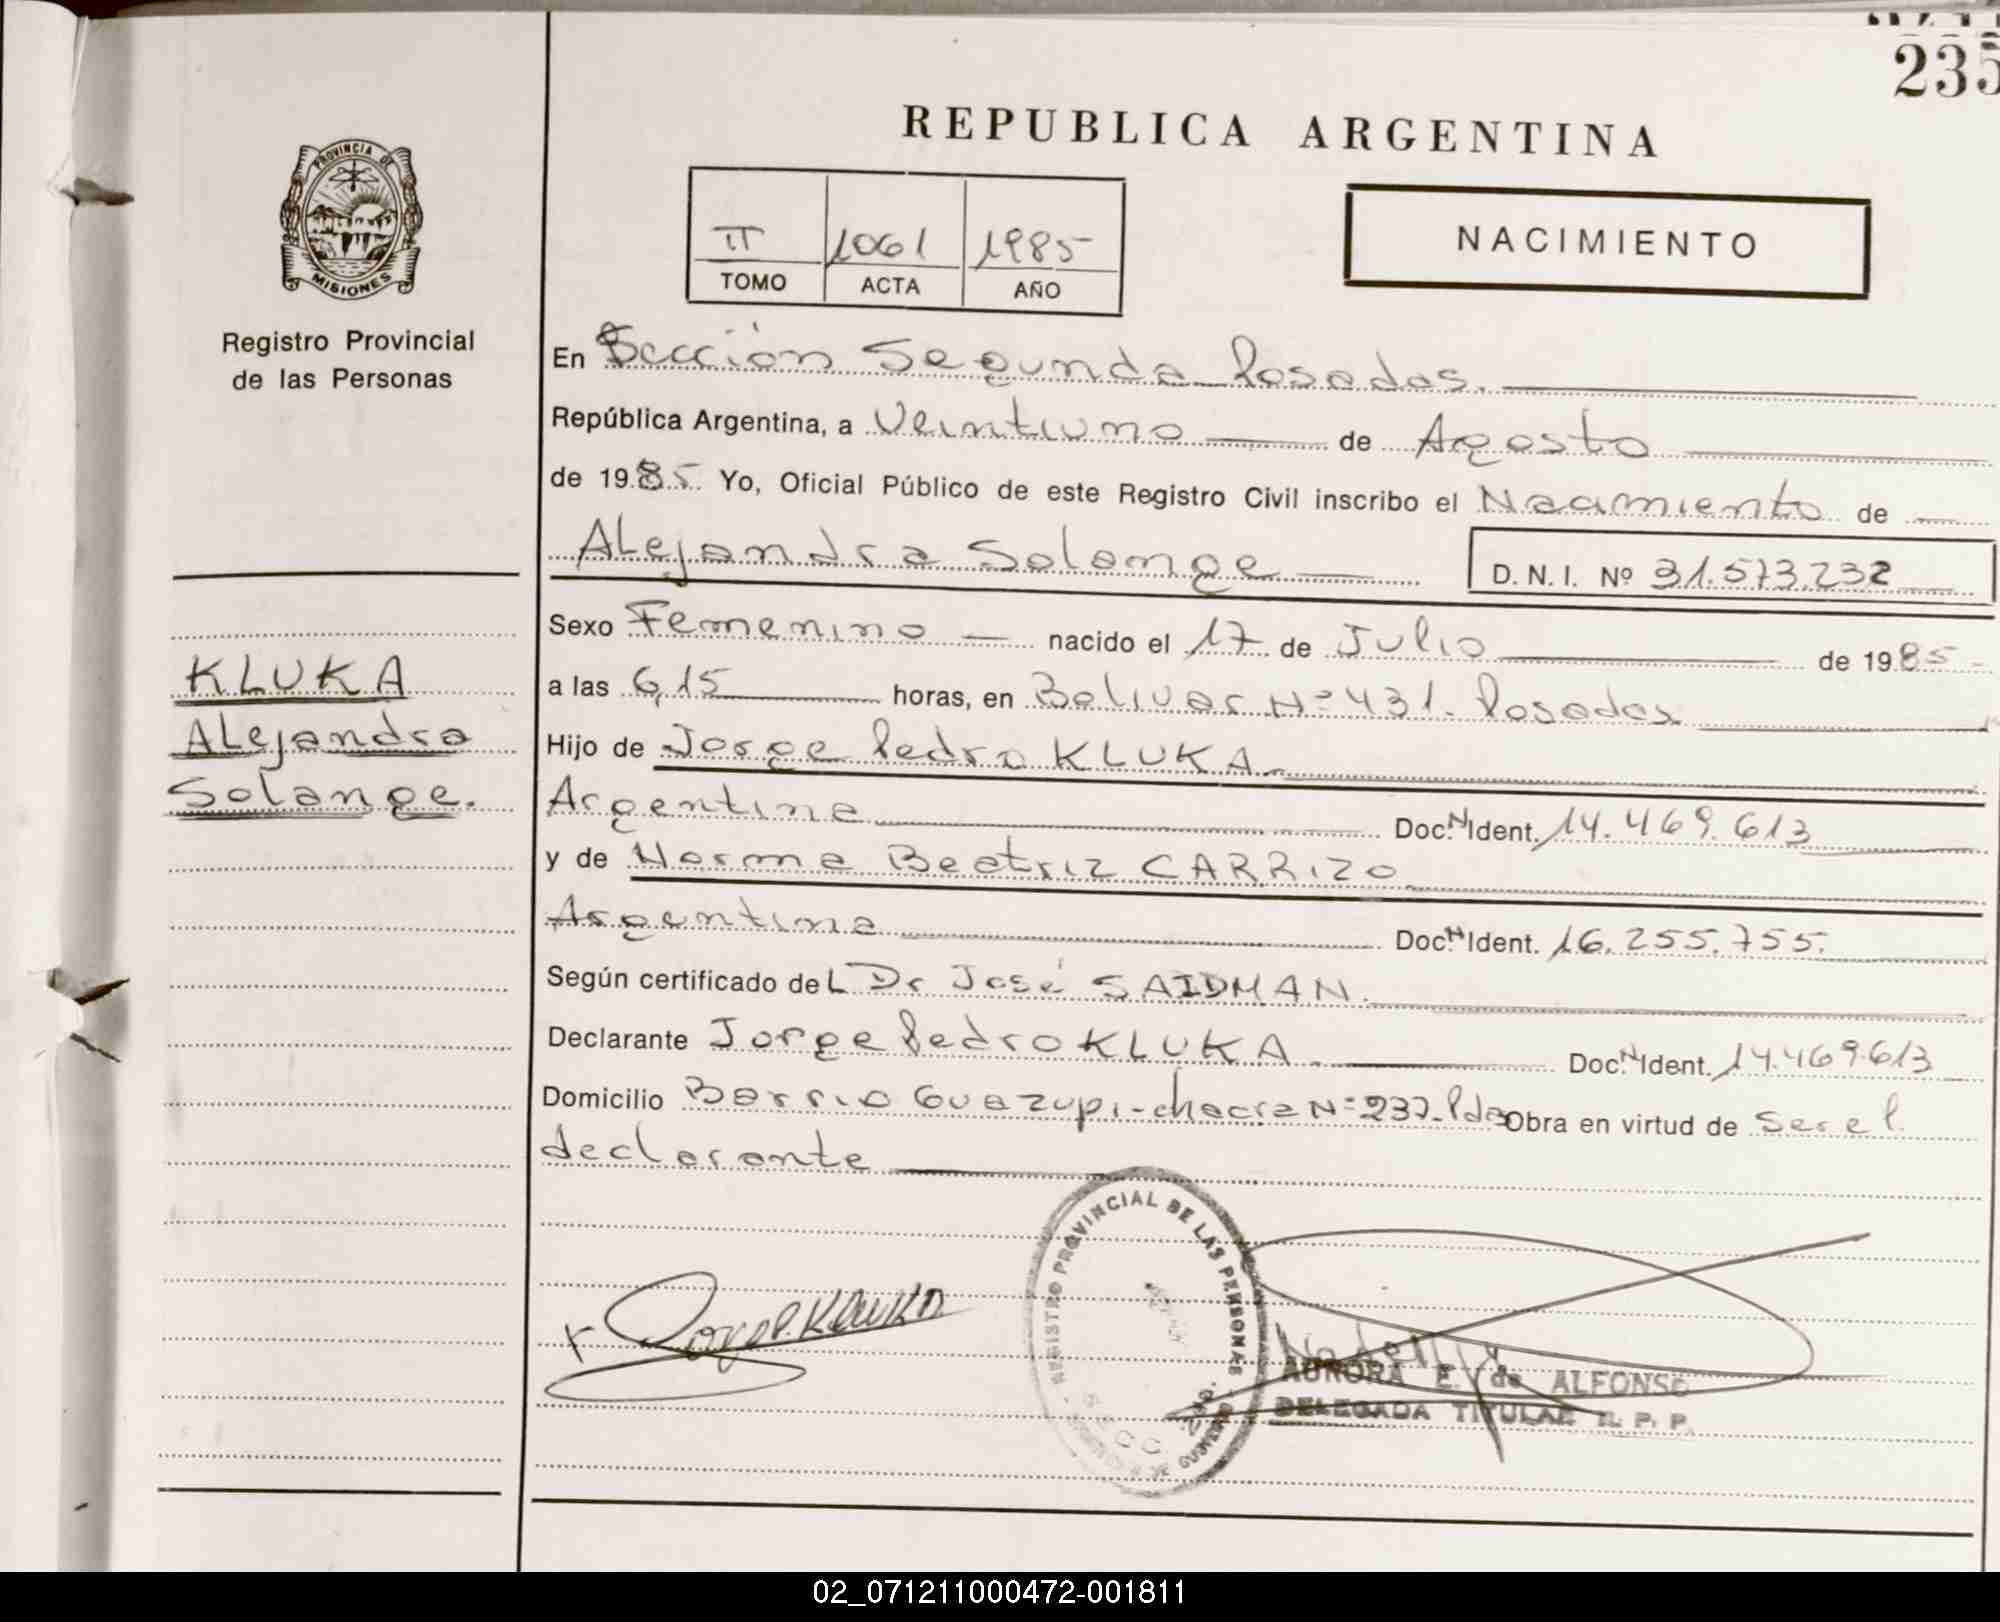 235
REPUBLICA ARGENTINA
PROVINCIA DE
MISIONES
Registro Provincial
de las Personas
II 1061 1985
TOMO ACTA AÑO
NACIMIENTO
En Sección Segunda Posadas.
República Argentina, a Veintiuno de Agosto
de 1985. Yo, Oficial Público de este Registro Civil inscribo el Nacimiento de
Alejandra Solange D. N. I. Nº 31.573.232
KLUKA
Alejandra
Solange.
Sexo Femenino nacido el 17 de Julio de 1985
a las 6,15 horas, en Bolivar Nº 431. Posadas
Hijo de Jorge Pedro KLUKA
Argentina Doc. N Ident. 14.469.613
y de Norma Beatriz CARRIZO
Argentina Doc. N Ident. 16.255.755.
Según certificado del Dr José SAIDMAN.
Declarante Jorge Pedro KLUKA. Doc. N Ident. 14.469.613
Domicilio Barrio Guazupi-chacra Nº 237. Pdas Obra en virtud de Ser el
declarante
REGISTRO PROVINCIAL DE LAS PERSONAS
Jorge P. Kluka
AURORA E. de ALFONSO
DELEGADA TITULAR R. P. P.
02_071211000472-001811